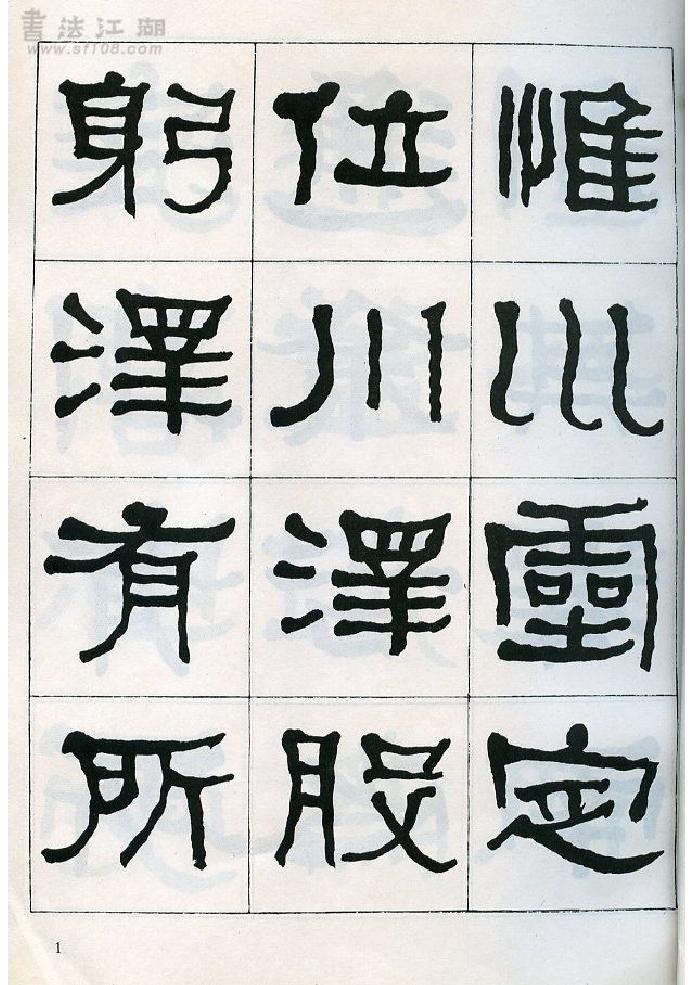 書法江湖
www.sf108.com
惟巛靈定
位川澤股
躬澤有所
1